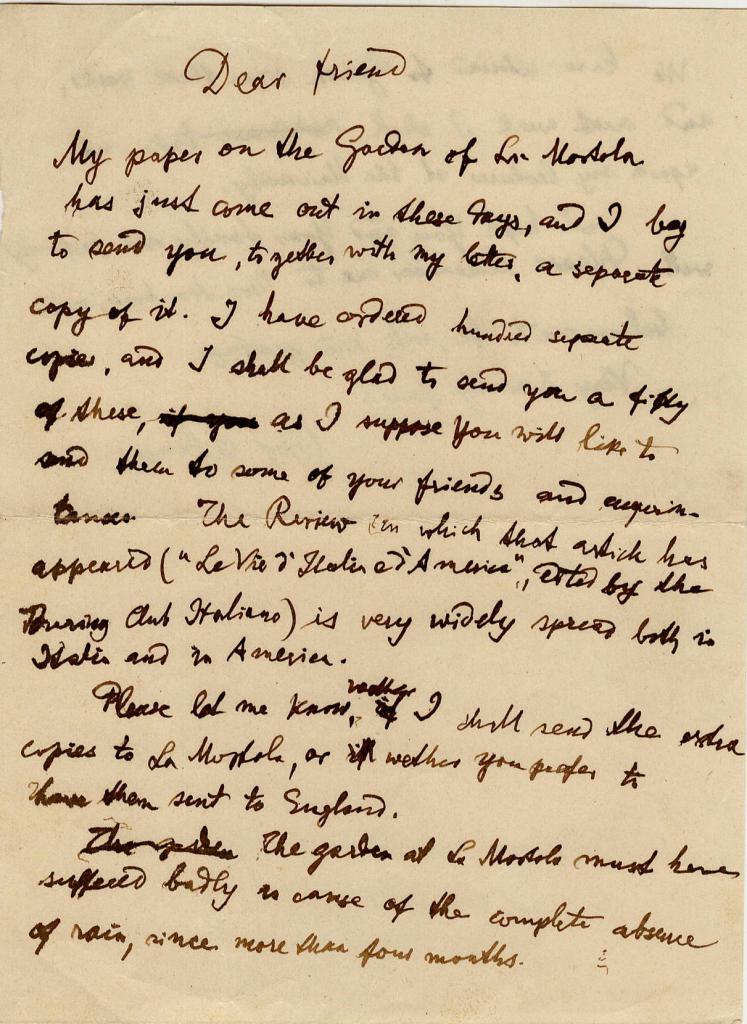 Dear friend
My paper on the Garden of La Mortola
has just come out in these days, and I beg
to send you, together with my letter, a separate
copy of it. I have ordered hundred separate
copies, and I shall be glad to send you a fifty
of these, if you as I suppose you will like to
send them to some of your friends and acquain-
tances. The Review in which that article has
appeared ("Le Vie d'Italia e d'America", edited by the
Touring Club Italiano) is very widely spread both in
Italia and in America.
Please let me know, wether if I shall send the extra
copies to La Mortola, or if wether you prefer to
have them sent to England.
The garden The garden at La Mortola must have
suffered badly cause of the complete absence
of rain, since more than four months.